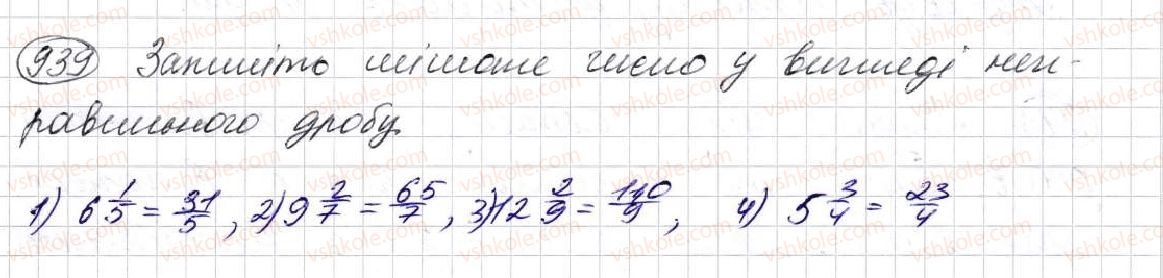 939 Запишіть мішане число у вигляді неп-
равильного дробу
1) 6 1/5 = 31/5, 2) 9 2/7 = 65/7, 3) 12 2/9 = 110/9, 4) 5 3/4 = 23/4